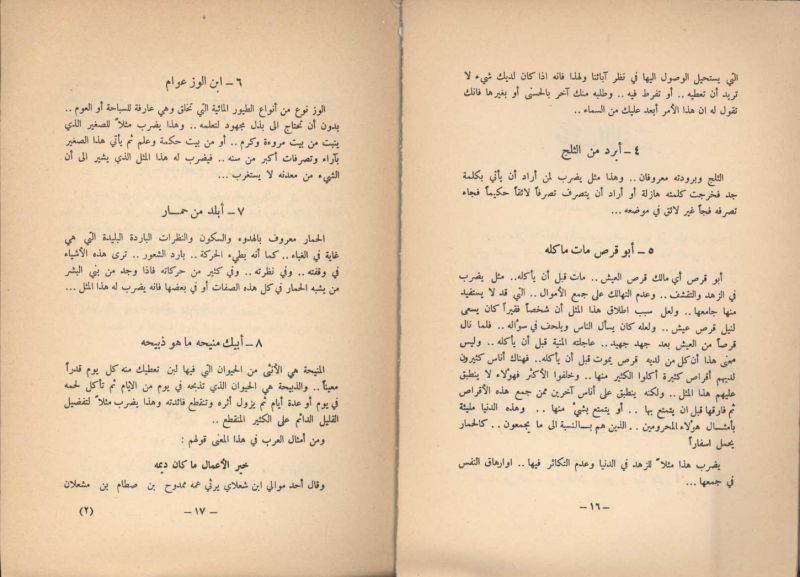 التي يستحيل الوصول اليها في نظر آبائنا ولهذا فانه اذا كان لديك شيء لا
تريد أن تعطيه .. أو تفرط فيه .. وطلبه منك آخر بالحسنى أو بغيرها فانك
تقول له ان هذا الأمر أبعد عليك من السماء ..
٤ – أبرد من الثلج
الثلج وبرودته معروفان .. وهذا مثل يضرب لمن أراد أن يأتي بكلمة
جد فخرجت كلمته هازلة أو أراد أن يتصرف تصرفاً لائقاً حكيماً فجاء
تصرفه فجاً غير لائق في موضعه ...
٥ – أبو قرص مات ماكله
أبو قرص أي مالك قرص العيش .. مات قبل أن يأكله .. مثل يضرب
في الزهد والتقشف .. وعدم التهالك على جمع الأموال .. التي قد لا يستفيد
منها جامعها .. ولعل سبب اطلاق هذا المثل أن شخصاً فقيراً كان يسعى
لنيل قرص عيش .. ولعله كان يسأل الناس ويلحف في سؤاله .. فلما نال
قرصاً من العيش بعد جهد جهيد .. عاجلته المنية قبل أن يأكله .. وليس
معنى هذا أن كل من لديه قرص يموت قبل أن يأكله .. فهناك أناس كثيرون
لديهم أقراص كثيرة أكلوا الكثير منها .. وخلفوا الأكثر فهؤلاء لا ينطبق
عليهم هذا المثل .. ولكنه ينطبق على أناس آخرين ممن جمع هذه الأقراص
ثم فارقها قبل ان يتمتع بها .. أو يتمتع بشيء منها .. وهذه الدنيا مليئة
بأمثال هؤلاء المحرومين .. الذين هم بالنسبة الى ما يجمعون .. كالحمار
يحمل اسفاراً
يضرب هذا مثلاً للزهد في الدنيا وعدم التكاثر فيها .. اوارهاق النفس
في جمعها ...
– ١٦ –
٦ – ابن الوز عوام
الوز نوع من أنواع الطيور المائية التي تخلق وهي عارفة للسباحة أو العوم ..
بدون أن تحتاج الى بذل مجهود لتعلمه .. وهذا يضرب مثلاً للصغير الذي
ينبت من بيت مروءة وكرم .. أو من بيت حكمة وعلم ثم يأتي هذا الصغير
بآراء وتصرفات أكبر من سنه .. فيضرب له هذا المثل الذي يشير الى أن
الشيء من معدنه لا يستغرب ...
٧ – أبلد من حمار
الحمار معروف بالهدوء والسكون والنظرات الباردة البليدة التي هي
غاية في الغباء .. كما أنه بطيء الحركة .. بارد الشعور .. ترى هذه الأشياء
في وقفته .. وفي نظرته .. وفي كثير من حركاته فاذا وجد من بني البشر
من يشبه الحمار في كل هذه الصفات أو في بعضها فانه يضرب له هذا المثل ...
٨ – أبيك منيحه ما هو ذبيحه
المنيحة هي الأنثى من الحيوان التي فيها لبن تعطيك منه كل يوم قدراً
معيناً .. والذبيحة هي الحيوان الذي تذبحه في يوم من الايام ثم تأكل لحمه
في يوم أو عدة أيام ثم يزول أثره وتنقطع فائدته وهذا يضرب مثلاً لتفضيل
القليل الدائم على الكثير المنقطع ..
ومن أمثال العرب في هذا المعنى قولهم :
خير الأعمال ما كان ديمه
وقال أحد موالي ابن شعلان يرثي عمه ممدوح بن صطام بن مشعلان
– ١٧ –
(٢)